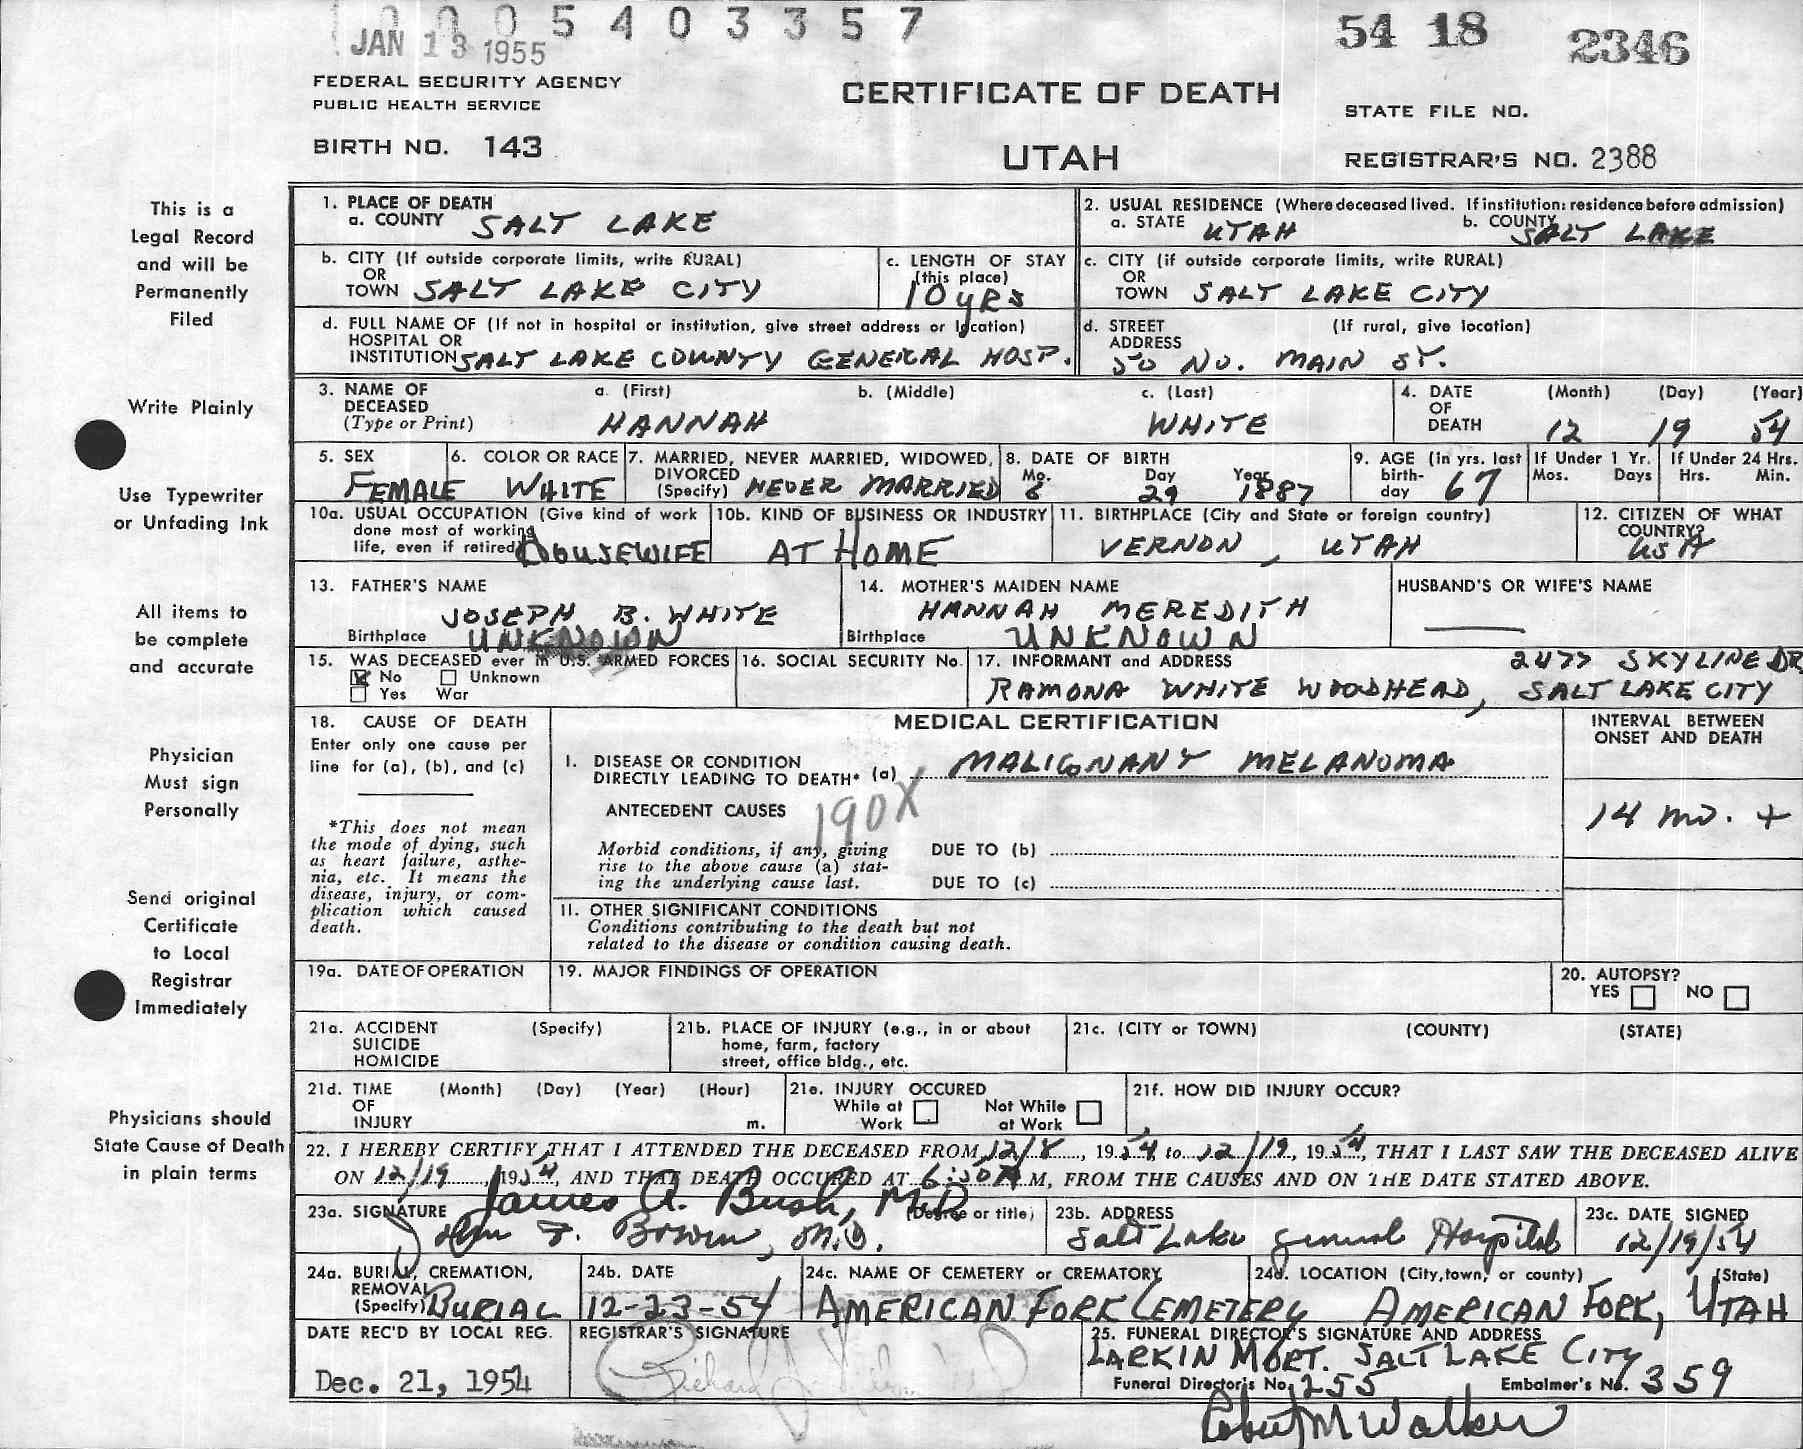 0005403357
JAN 13 1955
54 18 2346
FEDERAL SECURITY AGENCY
PUBLIC HEALTH SERVICE
CERTIFICATE OF DEATH
STATE FILE NO.
BIRTH NO. 143
UTAH
REGISTRAR'S NO. 2388
This is a
Legal Record
and will be
Permanently
Filed
Write Plainly
Use Typewriter
or Unfading Ink
All items to
be complete
and accurate
Physician
Must sign
Personally
Send original
Certificate
to Local
Registrar
Immediately
Physicians should
State Cause of Death
in plain terms
1. PLACE OF DEATH
a. COUNTY SALT LAKE
2. USUAL RESIDENCE (Where deceased lived. If institution: residence before admission)
a. STATE UTAH b. COUNTY SALT LAKE
b. CITY (If outside corporate limits, write RURAL)
OR
TOWN SALT LAKE CITY
c. LENGTH OF STAY
(this place)
10 YRS
c. CITY (if outside corporate limits, write RURAL)
OR
TOWN SALT LAKE CITY
d. FULL NAME OF (If not in hospital or institution, give street address or location)
HOSPITAL OR
INSTITUTION SALT LAKE COUNTY GENERAL HOSP.
d. STREET (If rural, give location)
ADDRESS
50 NO. MAIN ST.
3. NAME OF a. (First) b. (Middle) c. (Last)
DECEASED
(Type or Print) HANNAH WHITE
4. DATE (Month) (Day) (Year)
OF
DEATH 12 19 54
5. SEX
FEMALE
6. COLOR OR RACE
WHITE
7. MARRIED, NEVER MARRIED, WIDOWED,
DIVORCED
(Specify) NEVER MARRIED
8. DATE OF BIRTH
Mo. Day Year
8 29 1887
9. AGE (in yrs. last
birth-
day 67
If Under 1 Yr.
Mos. Days
If Under 24 Hrs.
Hrs. Min.
10a. USUAL OCCUPATION (Give kind of work
done most of working
life, even if retired) HOUSEWIFE
10b. KIND OF BUSINESS OR INDUSTRY
AT HOME
11. BIRTHPLACE (City and State or foreign country)
VERNON, UTAH
12. CITIZEN OF WHAT
COUNTRY?
USA
13. FATHER'S NAME
JOSEPH B. WHITE
Birthplace UNKNOWN
14. MOTHER'S MAIDEN NAME
HANNAH MEREDITH
Birthplace UNKNOWN
HUSBAND'S OR WIFE'S NAME
15. WAS DECEASED ever in U.S. ARMED FORCES
No Unknown
Yes War
16. SOCIAL SECURITY No.
17. INFORMANT and ADDRESS 2477 SKYLINE DR
RAMONA WHITE WOODHEAD, SALT LAKE CITY
18. CAUSE OF DEATH
Enter only one cause per
line for (a), (b), and (c)
*This does not mean
the mode of dying, such
as heart failure, asthe-
nia, etc. It means the
disease, injury, or com-
plication which caused
death.
MEDICAL CERTIFICATION
INTERVAL BETWEEN
ONSET AND DEATH
I. DISEASE OR CONDITION
DIRECTLY LEADING TO DEATH* (a) MALIGNANT MELANOMA
ANTECEDENT CAUSES
190X
14 mo. +
Morbid conditions, if any, giving
rise to the above cause (a) stat-
ing the underlying cause last.
DUE TO (b)
DUE TO (c)
II. OTHER SIGNIFICANT CONDITIONS
Conditions contributing to the death but not
related to the disease or condition causing death.
19a. DATE OF OPERATION
19. MAJOR FINDINGS OF OPERATION
20. AUTOPSY?
YES NO
21a. ACCIDENT (Specify)
SUICIDE
HOMICIDE
21b. PLACE OF INJURY (e.g., in or about
home, farm, factory
street, office bldg., etc.
21c. (CITY or TOWN) (COUNTY) (STATE)
21d. TIME (Month) (Day) (Year) (Hour)
OF
INJURY m.
21e. INJURY OCCURED
While at Work Not While at Work
21f. HOW DID INJURY OCCUR?
22. I HEREBY CERTIFY THAT I ATTENDED THE DECEASED FROM 12/8, 1954, to 12/19, 1954, THAT I LAST SAW THE DECEASED ALIVE
ON 12/19, 1954, AND THAT DEATH OCCURED AT 6:50 A M, FROM THE CAUSES AND ON THE DATE STATED ABOVE.
James A. Bush, M.D.
23a. SIGNATURE (Degree or title)
F. Bowen, M.D.
23b. ADDRESS
Salt Lake General Hospital
23c. DATE SIGNED
12/19/54
24a. BURIAL, CREMATION,
REMOVAL
(Specify) BURIAL
24b. DATE
12-23-54
24c. NAME OF CEMETERY or CREMATORY
AMERICAN FORK CEMETERY
24d. LOCATION (City, town, or county) (State)
AMERICAN FORK, UTAH
DATE REC'D BY LOCAL REG.
Dec. 21, 1954
REGISTRAR'S SIGNATURE
Richard
25. FUNERAL DIRECTOR'S SIGNATURE AND ADDRESS
LARKIN MORT. SALT LAKE CITY
Funeral Director's No. 255 Embalmer's No. 359
Robert M Walker